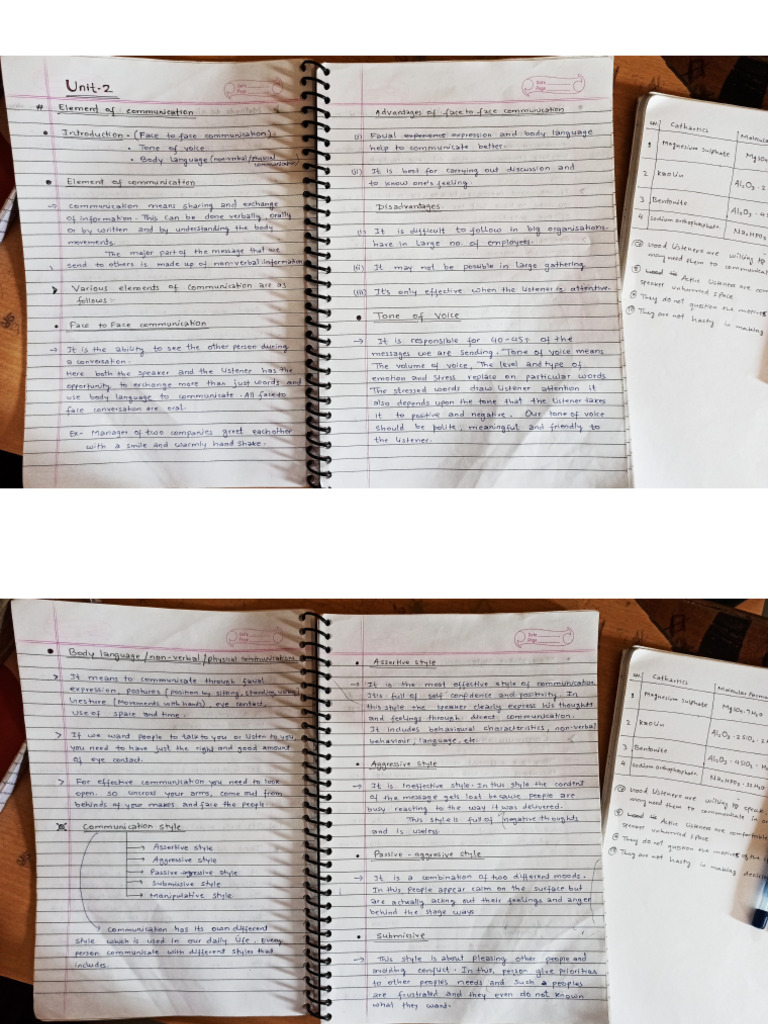 Unit-2
# Element of communication
• Introduction - (Face to face communication)
• Tone of voice
• Body language (non-verbal/physical communication)
• Element of communication
→ Communication means sharing and exchange
of information. This can be done verbally, orally
or by written and by understanding the body
movements.
The major part of the message that we
send to others is made up of non-verbal information
> Various elements of communication are as
follows:
• Face to Face communication
→ It is the ability to see the other person during
a conversation.
Here both the speaker and the listener has the
opportunity to exchange more than just words and
use body language to communicate. All face to
face conversation are oral.
Ex- Manager of two companies greet eachother
with a smile and warmly hand shake.
Advantages of face to face communication
(i) Faual expression and body language
help to communicate better.
(ii) It is best for carrying out discussion and
to know one's feeling.
Disadvantages
(i) It is difficult to follow in big organisations
have in large no. of employees.
(ii) It may not be possible in large gathering
(iii) It's only effective when the listener is attentive.
• Tone of voice
→ It is responsible for 40-45% of the
messages we are sending. Tone of voice means
The volume of voice, The level and type of
emotion and stress replace on particular words
The stressed words draw listener attention it
also depends upon the tone that the listener takes
it to positive and negative. Our tone of voice
should be polite, meaningful and friendly to
the listener.
Cathartics
Molecula
1 Magnesium Sulphate MgSO4
2 Kaolin Al2O3. 2
3 Bentonite Al2O3. 4
4 Sodium orthophosphate Na2HPO4
Good Listeners are willing to
need them to communicat
Active Listeners are com
speaker unhurried space
They do not question the motives
They are not hasty in making
• Body language/non-verbal/physical communication
> It means to communicate through faual
expression, postures (position by sitting, standing,
Gesture (Movements with hands), eye contact,
use of space and time.
> If we want people to talk to you or listen to you,
you need to have just the right and good amount
of eye contact.
> For effective communication you need to look
open. So uncross your arms, come out from
behinds of your makes and face the people.
Communication style
→ Assertive style
→ Aggressive style
→ Passive-agressive style
→ Submissive style
→ Manipulative style
Communication has its own different
style which is used in our daily life. Every
person communicate with different styles that
includes.
• Assertive style
→ It is the most effective style of communication
It is full of self confidence and positivity. In
this style the speaker clearly express his thoughts
and feelings through direct communication.
It includes behavioural characteristics, non-verbal
behaviour, language, etc.
• Aggressive style
→ It is Ineffective style. In this style the content
of the message gets lost because people are
busy reacting to the way it was delivered.
This style is full of negative thoughts
and is useless.
• Passive-aggressive style
→ It is a combination of two different moods.
In this, People appear calm on the surface but
are actually acking out their feelings and anger
behind the stage ways
• Submissive
→ This style is about pleasing other people and
avoiding conflict. In this, person give priorities
to other people's needs and such a peoples
are frustrated and they even do not known
what they want.
Cathartics
Molecular Formu
1 Magnesium Sulphate MgSO4. 7H2O
2 Kaolin Al2O3. 2SiO2. 2H
3 Bentonite Al2O3. 4SiO2. H2
4 Sodium orthophosphate Na2HPO4. 12H2O
Good Listeners are willing to speak
need them to communicate in or
Active Listeners are comfortable
speaker unhurried space
They do not question the motives of the
They are not hasty in making decisi